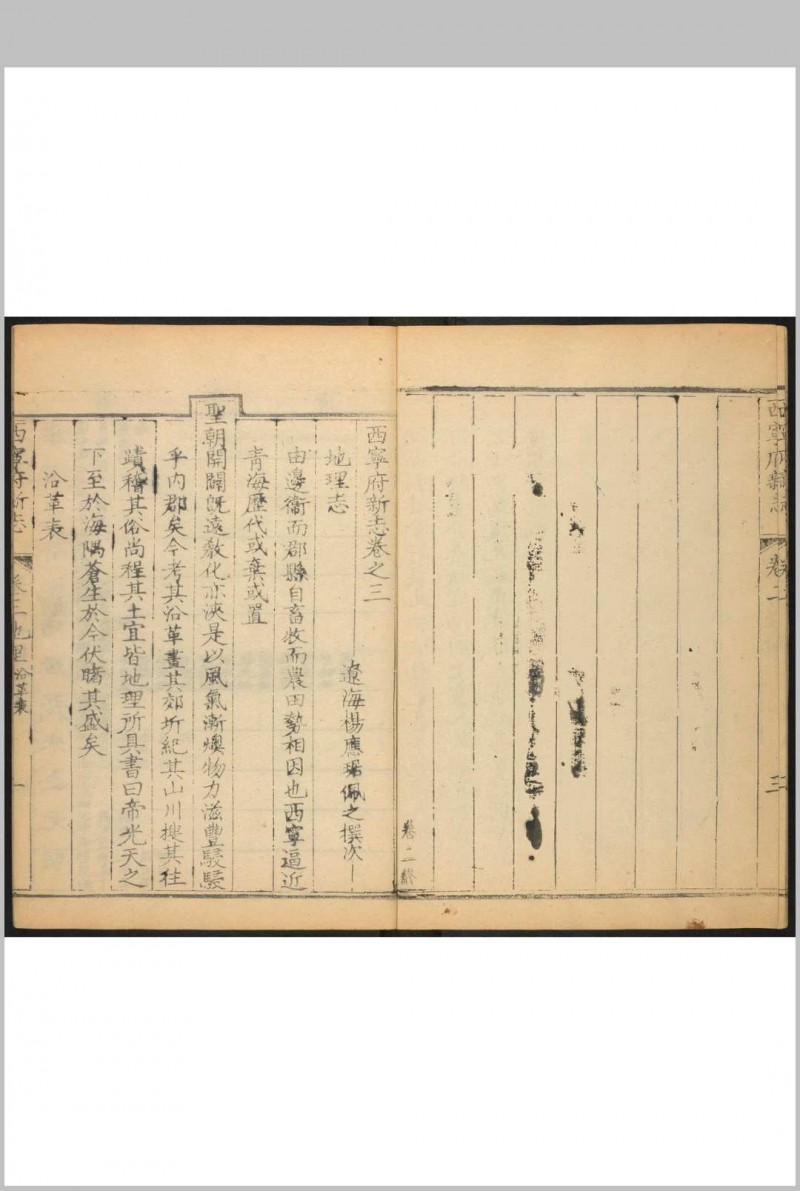 西寧府新志
卷二
三
卷二終
西寧府新志卷之三
遼海楊應琚佩之撰次
地理志
由邊衞而郡縣自畜牧而農田勢相因也西寧逼近
青海歷代或棄或置
聖朝開闢旣遠敎化亦浹是以風氣漸燠物力滋豐駸駸
乎內郡矣今考其沿革畫其郊圻紀其山川搜其往
蹟稽其俗尚程其土宜皆地理所具書曰帝光天之
下至於海隅蒼生於今伏睹其盛矣
沿革表
西寧府新志
卷三地里沿革表
一